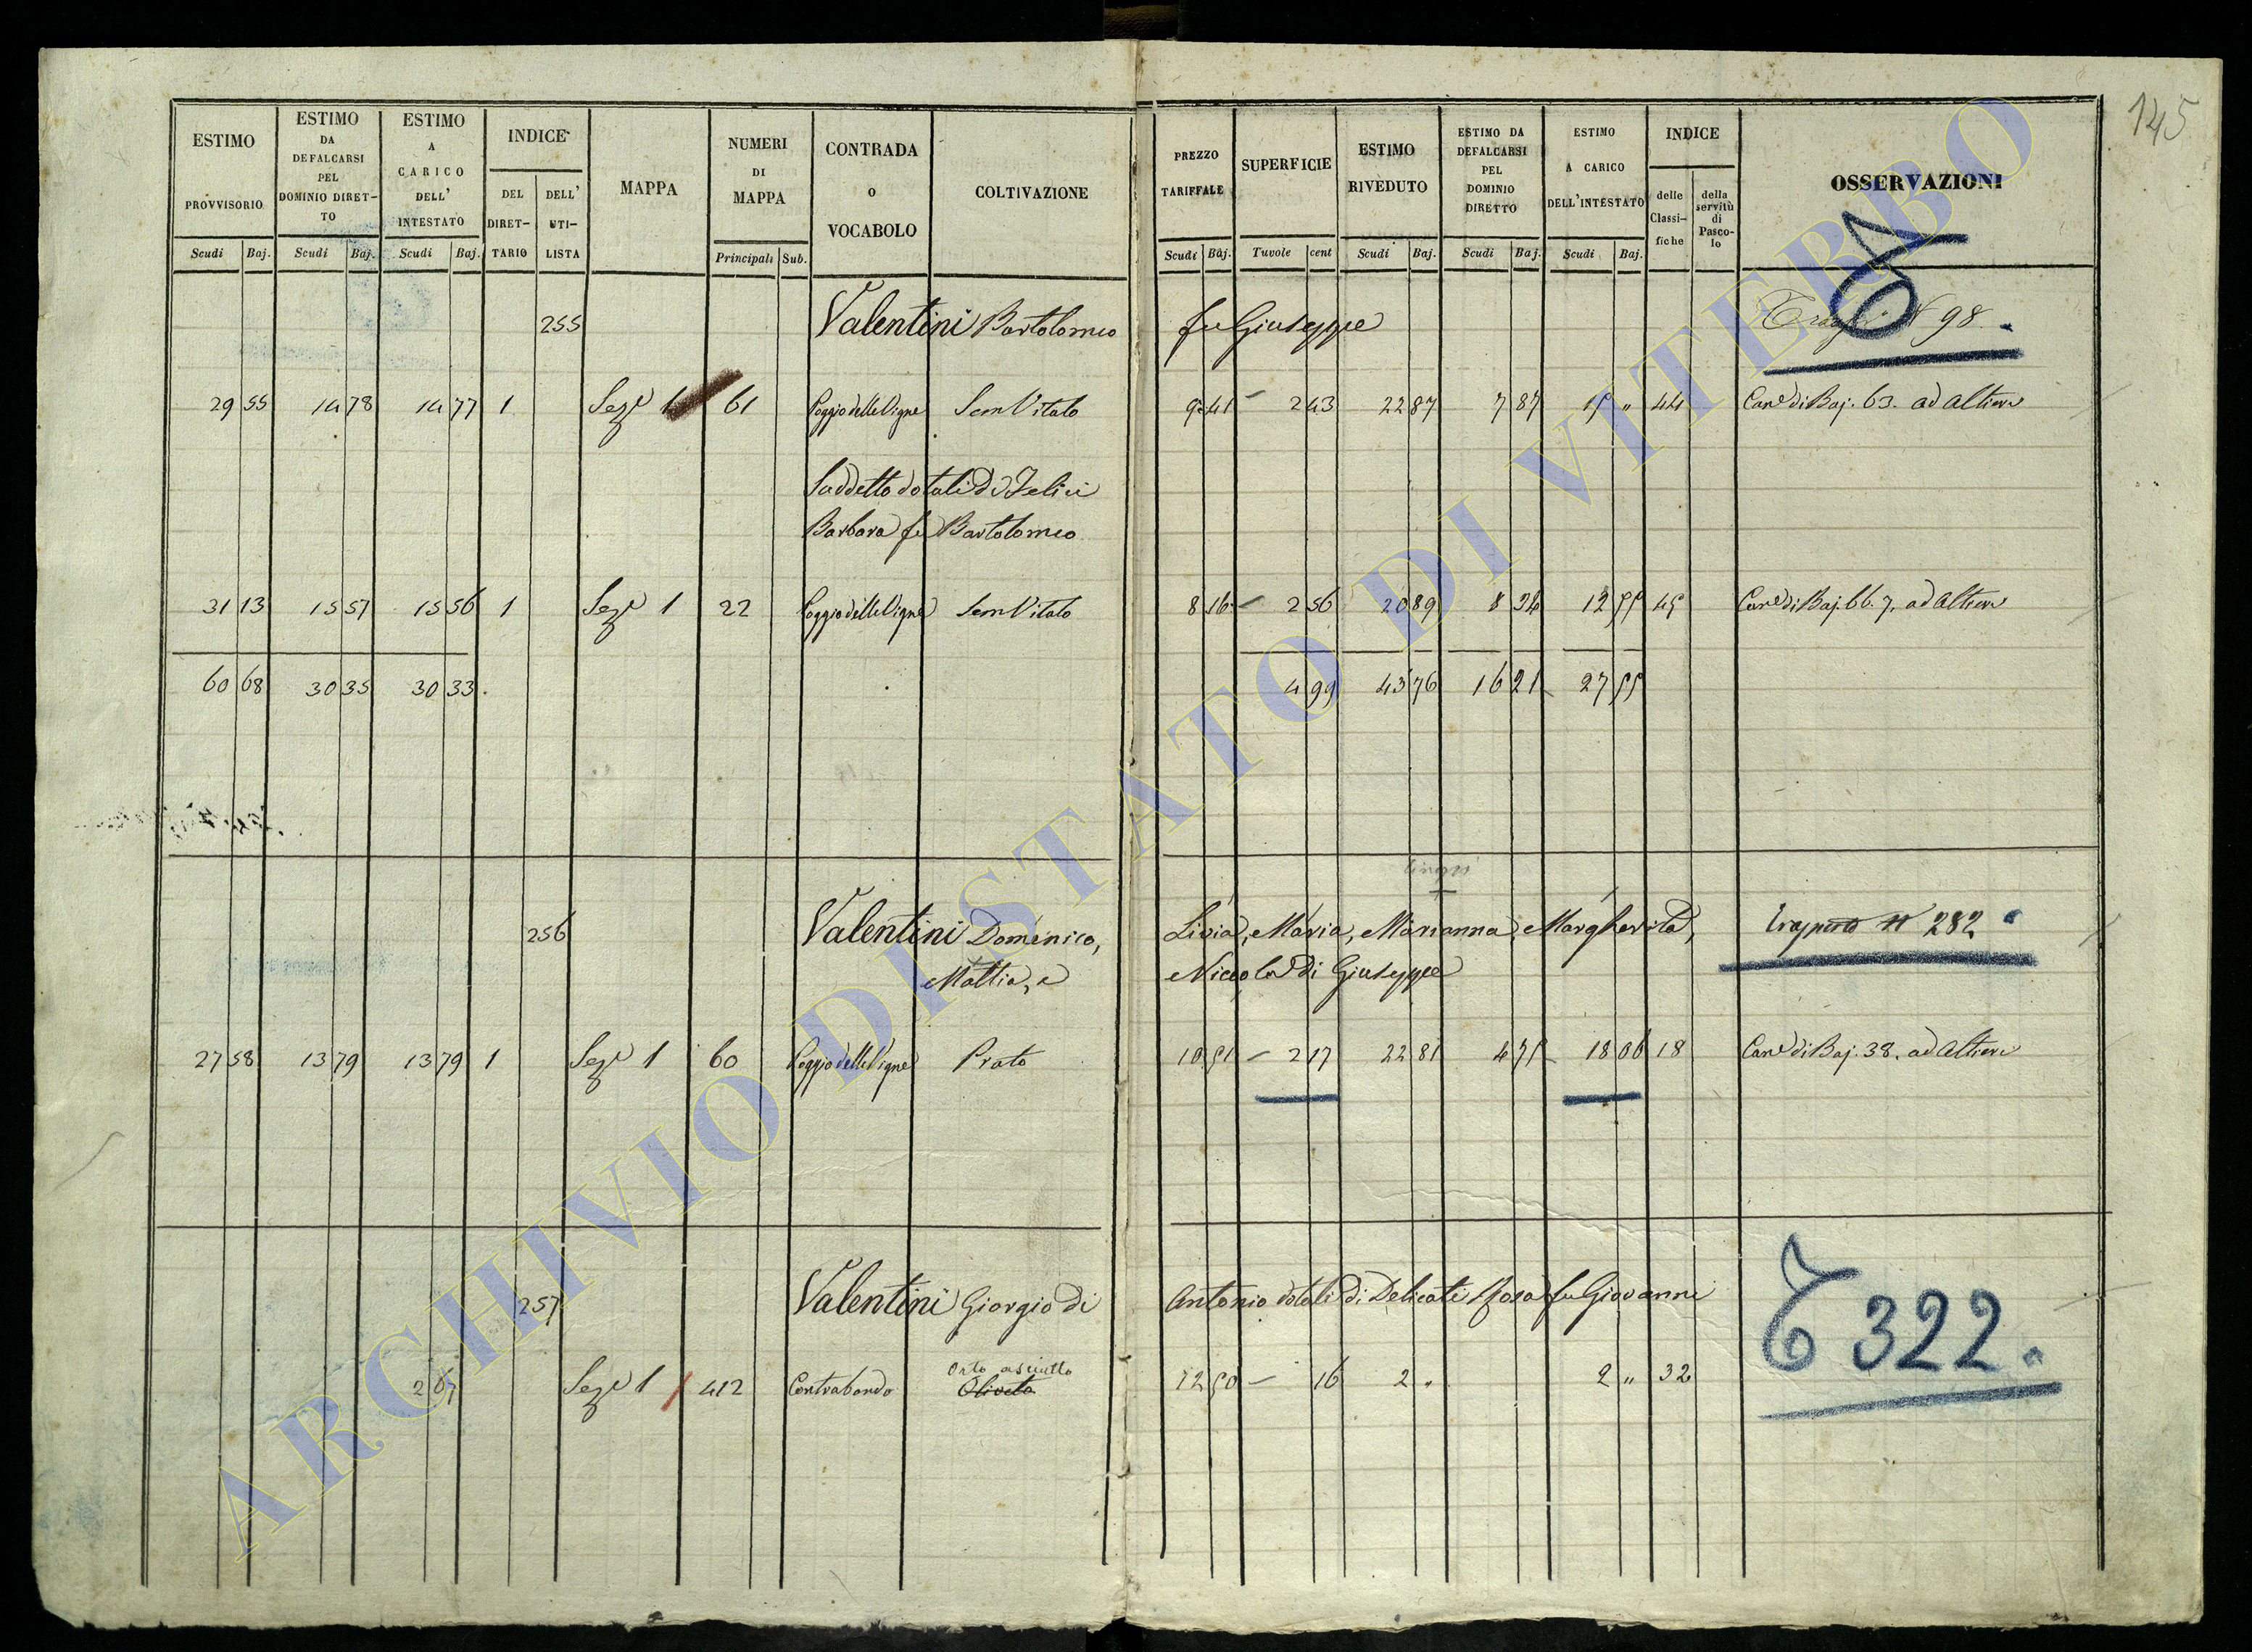 145
ESTIMO PROVVISORIO
ESTIMO DA DEFALCARSI PEL DOMINIO DIRET-TO
ESTIMO A CARICO DELL' INTESTATO
INDICE
DEL DIRET-TARIO
DELL' UTI-LISTA
MAPPA
NUMERI DI MAPPA
CONTRADA O VOCABOLO
COLTIVAZIONE
PREZZO TARIFFALE
SUPERFICIE
ESTIMO RIVEDUTO
ESTIMO DA DEFALCARSI PEL DOMINIO DIRETTO
ESTIMO A CARICO DELL'INTESTATO
INDICE
delle Classi-fiche
della servitù di Pasco-lo
OSSERVAZIONI
Scudi Baj. Scudi Baj. Scudi Baj. Principali Sub. Scudi Baj. Tavole cent Scudi Baj. Scudi Baj. Scudi Baj.
255 Valentini Bartolomeo fu Giuseppe N 98
29 55 14 78 14 77 1 Seze 1 61 Poggio delle Vigne Sem Vitato 9 41 - 2 43 22 87 7 87 15 " 44 Cane di Baj. 63. ad Altieri
Suddetto dotali di Felici
Barbara fu Bartolomeo
31 13 15 57 15 56 1 Seze 1 22 Poggio delle Vigne Sem Vitato 8 16 - 2 56 20 89 8 34 12 55 45 Cane di Baj. 66.7. ad Altieri
60 68 30 35 30 33 4 99 43 76 16 21 27 55
256 Valentini Domenico, Livia, Maria, Marianna, Margherita, Trasporto N 282
Mattia, e Niccola di Giuseppe
27 58 13 79 13 79 1 Seze 1 60 Poggio delle Vigne Prato 10 51 - 2 17 22 81 4 75 18 06 18 Cane di Baj. 38. ad Altieri
257 Valentini Giorgio di Antonio dotali di Delicati Rosa fu Giovanni
T 322.
Orto asciutto
2 67 Seze 1 412 Contrabando Oliveto 12 50 - 16 2 " 2 " 32
ARCHIVIO DI STATO DI VITERBO